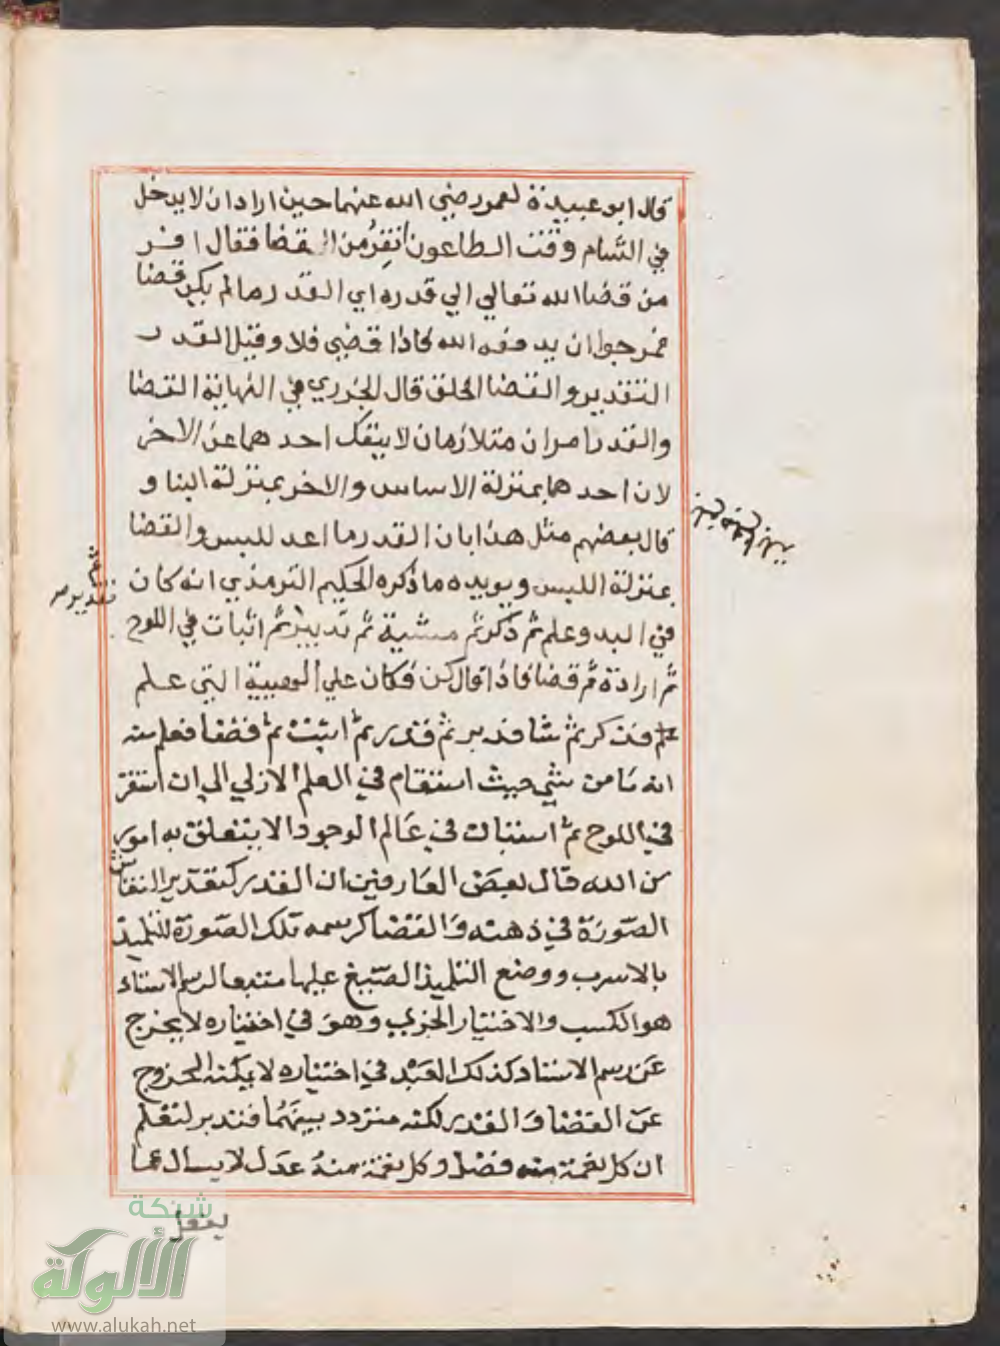 قال ابو عبيدة لعمر رضي الله عنهما حين اراد ان لا يدخل
في الشام وقت الطاعون اتفر من القضا فقال افر
من قضا الله تعالي الي قدره اي القدر ما لم يكن قضا
فمرجوا ان يدفعه الله فاذا قضي فلا وقيل القدر
التقدير والقضا الخلق قال الجزري في النهاية القضا
والقدر امران متلازمان لا ينفك احدهما عن الاخر
لان احدهما بمنزلة الاساس والاخر بمنزلة البنا و
قال بعضهم مثل هذا بان القدر ما اعد للبس والقضا
بمنزلة اللبس ويويده ما ذكره الحكيم الترمذي انه كان
في البدو علم ثم ذكر ثم مشية ثم تدبير ثم اثبات في اللوح
ثم ارادة ثم قضا فاذا قال كن فكان علي الهيية التي علم
علم فذكر ثم شا فدبر ثم قدر ثم اثبت ثم قضا فعلم منه
انه ما من شي حيث استقام في العلم الازلي الي ان استقر
في اللوح ثم استبان في عالم الوجود الا يتعلق به امور
من الله قال بعض العارفين ان القدر كتقدير النقاش
الصورة في ذهنه والقضا كرسمه تلك الصورة للتلميذ
بالاسرب ووضع التلميذ الصبغ عليها متبعا لرسم الاستاد
هو الكسب والاختيار الجزيي وهو في اختياره لا يخرج
عن رسم الاستاد كذلك العبد في اختياره لا يمكنه الخروج
عن القضا والقدر لكنه متردد بينهما فتدبر لتعلم
ان كل نعمة منه فضل وكل نقمة منه عدل لا يسال عما
يفعل
ثم
تقدير صر
شبكة
الألوكة
www.alukah.net